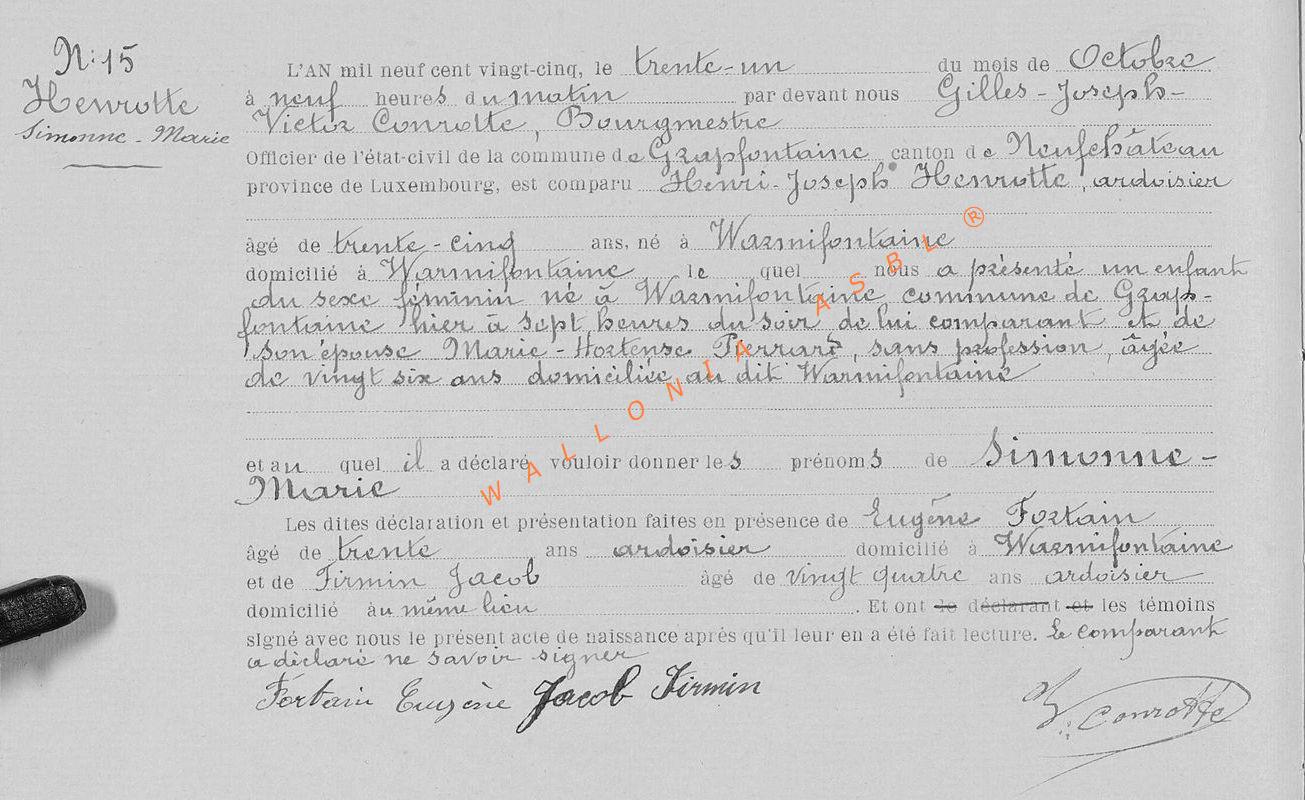 N: 15
Henrotte
Simonne - Marie
L'AN mil neuf cent vingt-cinq, le trente-un du mois de Octobre
à neuf heures du matin par devant nous Gilles - Joseph -
Victor Conrotte, Bourgmestre
Officier de l'état-civil de la commune de Grapfontaine canton de Neufchâteau
province de Luxembourg, est comparu Henri-Joseph Henrotte, ardoisier
âgé de trente-cinq ans, né à Warmifontaine
domicilié à Warmifontaine le quel nous a présenté un enfant
du sexe féminin né à Warmifontaine commune de Grap-
fontaine hier à sept heures du soir de lui comparant et de
son épouse Marie-Hortense Pierrard, sans profession, âgée
de vingt six ans domiciliée au dit Warmifontaine
et au quel il a déclaré vouloir donner les prénoms de Simonne -
Marie
Les dites déclaration et présentation faites en présence de Eugène Fortain
âgé de trente ans ardoisier domicilié à Warmifontaine
et de Firmin Jacob âgé de vingt quatre ans ardoisier
domicilié au même lieu . Et ont le déclarant et les témoins
signé avec nous le présent acte de naissance après qu'il leur en a été fait lecture. Le comparant
a déclaré ne savoir signer
Fortain Eugène Jacob Firmin
V. Conrotte
WALLONIA ASBL ®